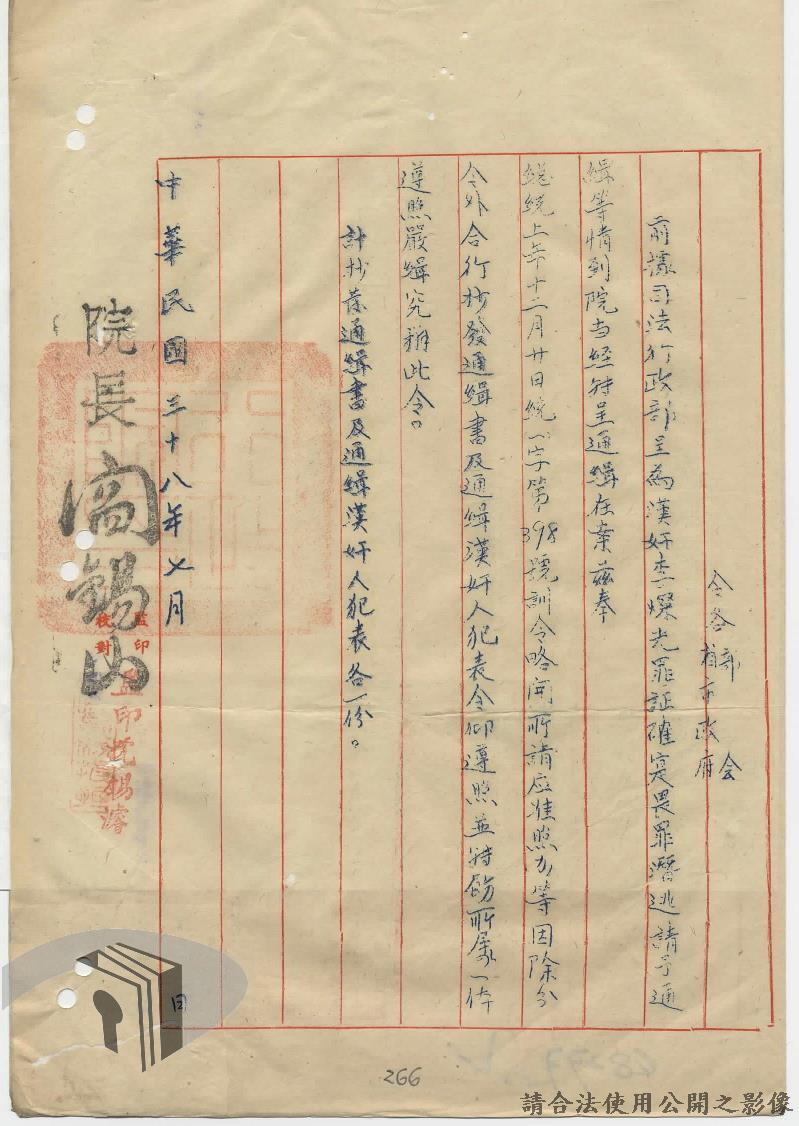 令各部會
省市政府
前據司法行政部呈為漢奸李燦光罪証確寔畏罪潛逃請予通
緝等情到院当經转呈通緝在案茲奉
總統上年十二月廿日統一字第398號訓令略開所請应准照办等因除分
令外合行抄發通緝書及通緝漢奸人犯表令仰遵照並转飭所屬一体
遵照嚴緝究辦此令。
計抄發通緝書及通緝漢奸人犯表各一份。
中華民國三十八年七月 日
院長閻錫山
監印
校對
266
請合法使用公開之影像